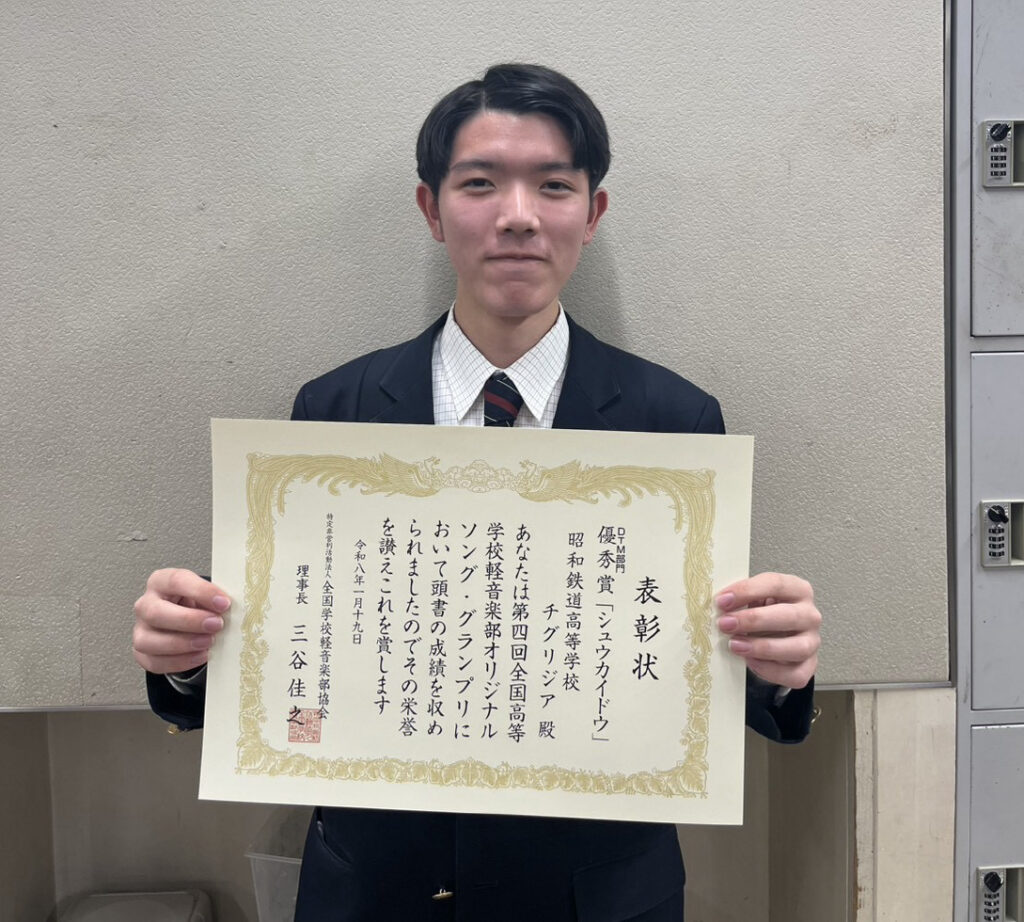 表彰状
DTM部門
優秀賞「シュウカイドウ」
昭和鉄道高等学校
チグリジア 殿
あなたは第四回全国高等
学校軽音楽部オリジナル
ソング・グランプリに
おいて頭書の成績を収め
られましたのでその栄誉
を讃えこれを賞します
令和八年一月十九日
特定非営利活動法人 全国学校軽音楽部協会
理事長 三谷佳之